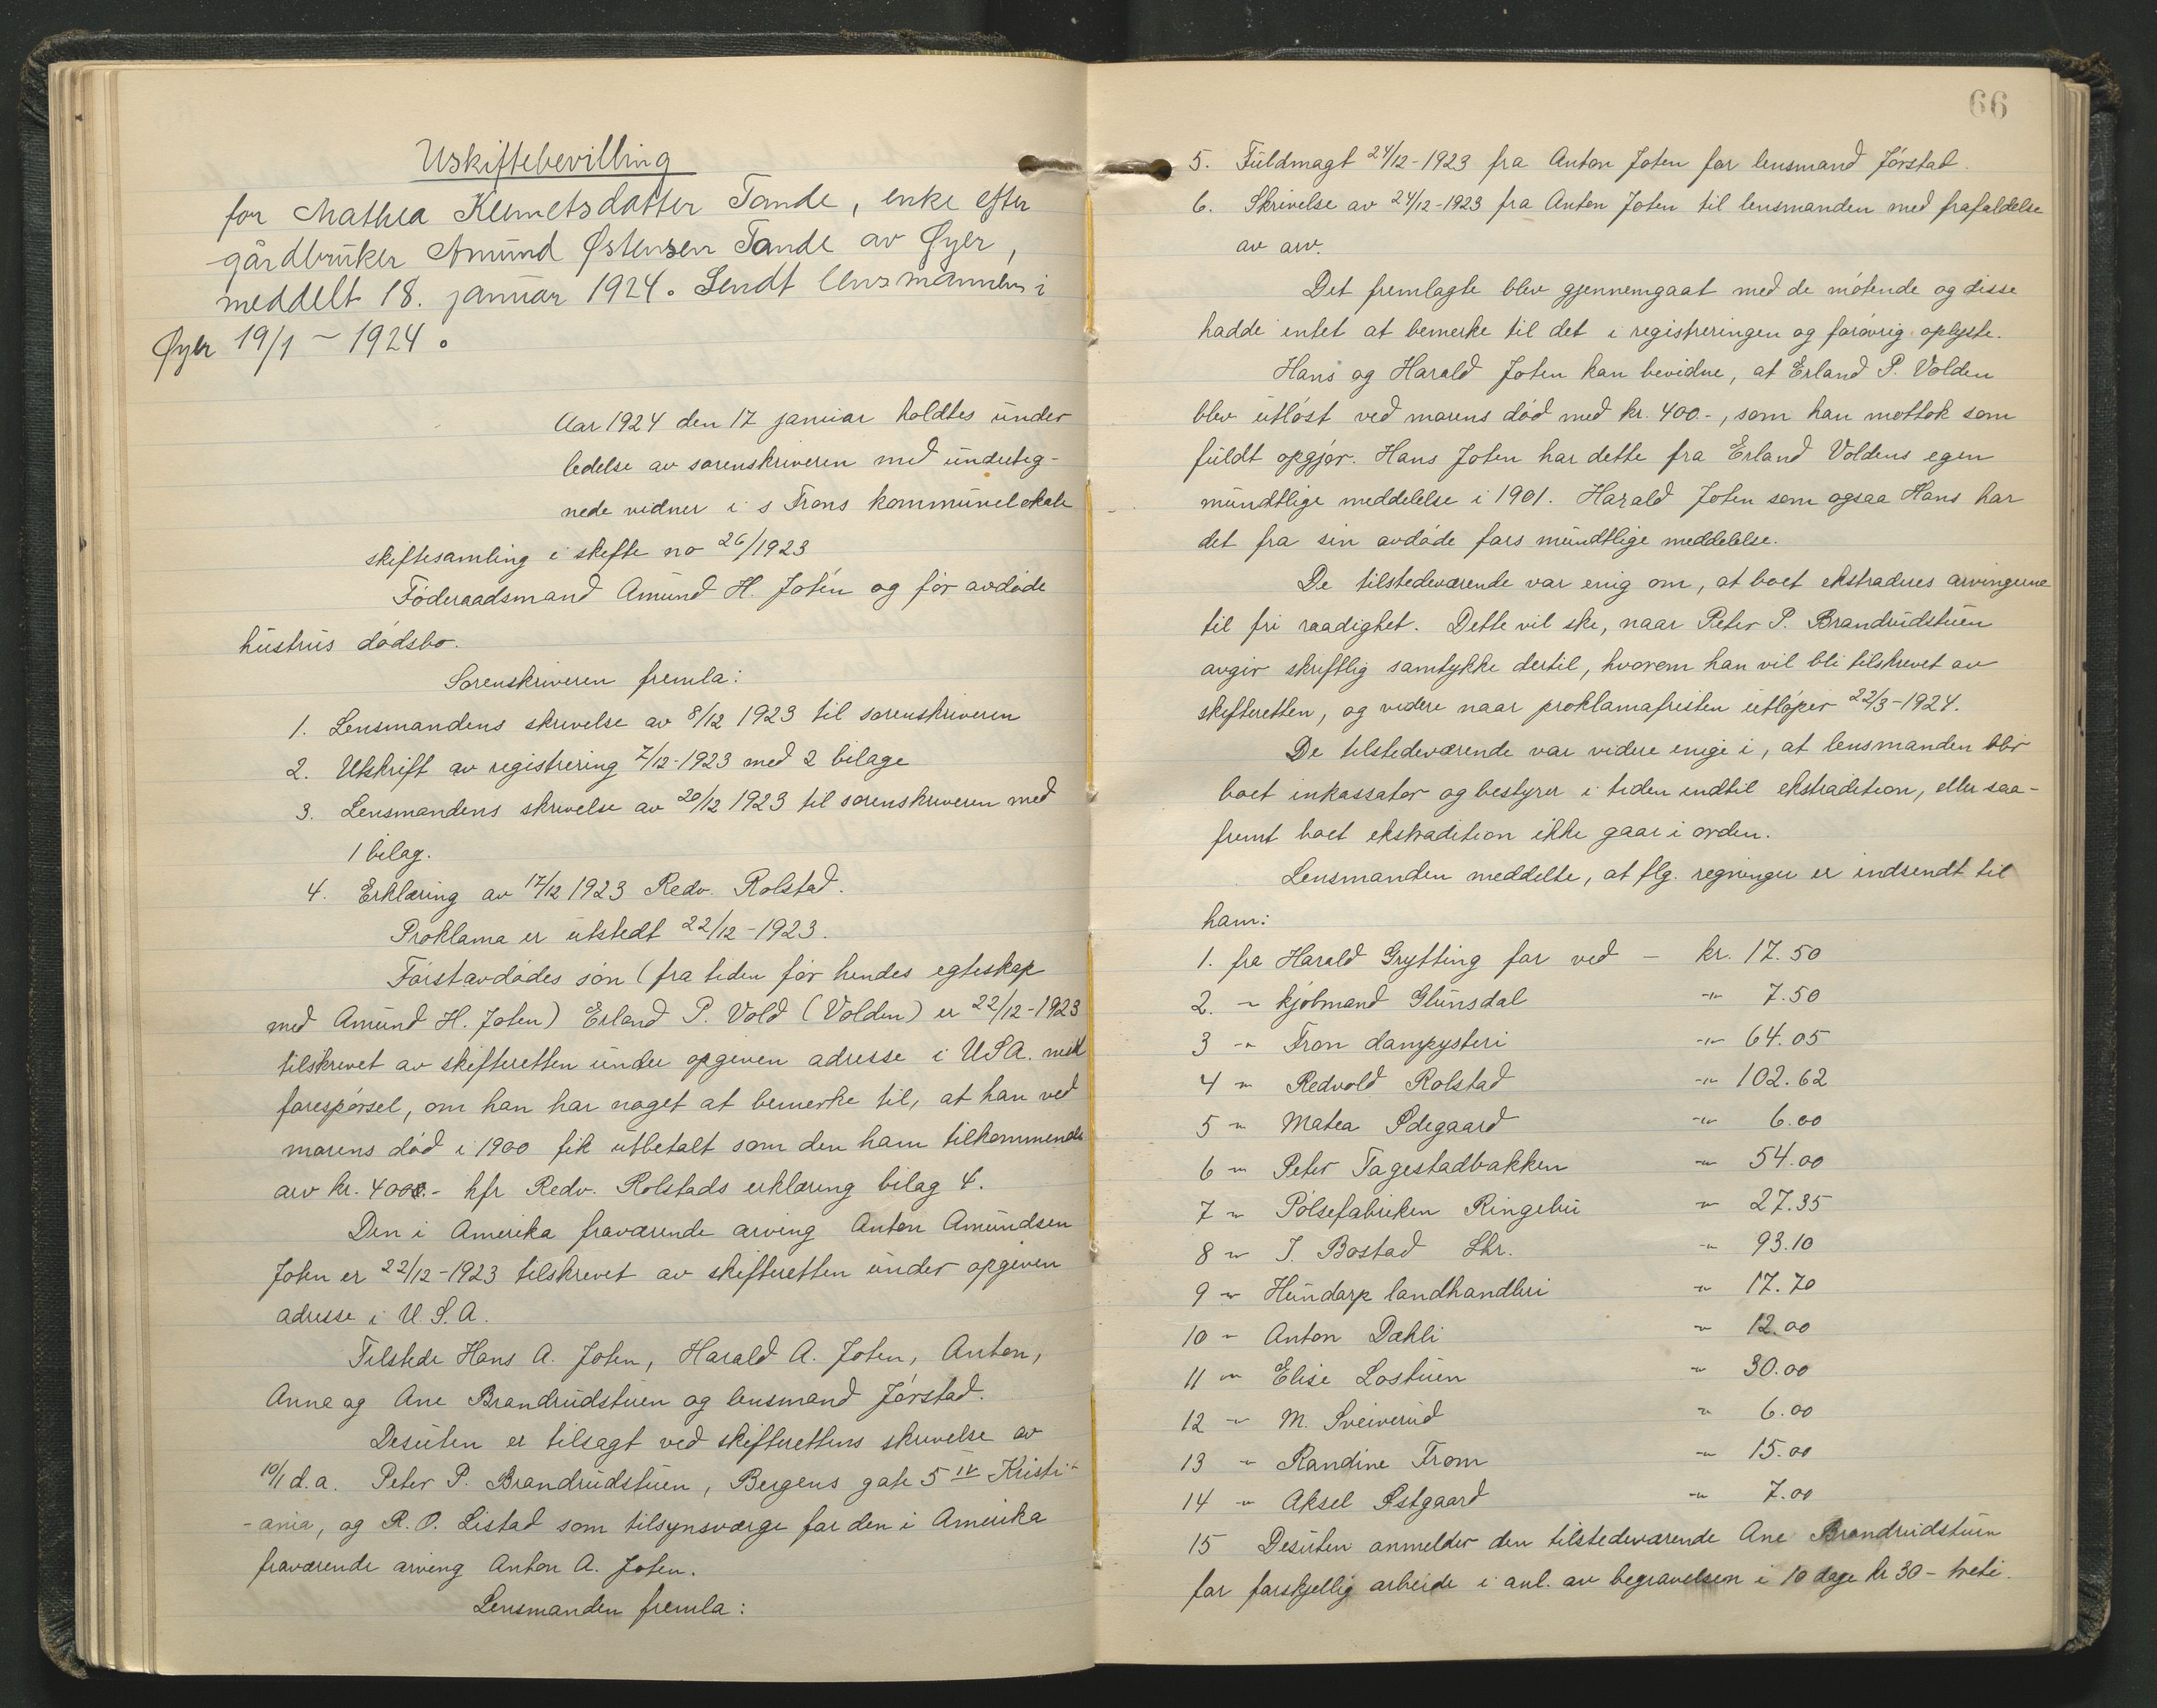 Uskiftebevilling
for Mathea Klemetsdatter Tande, enke efter
gårdbruker Amund Østensen Tande av Øyer,
meddelt 18. januar 1924. Sendt lensmannen i
Øyer 19/1 - 1924.
Aar 1924 den 17 januar holdtes under
ledelse av sorenskriveren med underteg-
nede vidner i s Frons kommunelokale
skiftesamling i skifte no 26/1923
Föderaadsmand Amund H. Joten og för avdöde
hustrus dödsbo.
Sorenskriveren fremla:
1. Lensmandens skrivelse av 8/12 1923 til sorenskriveren
2. Utskrift av registrering 7/12-1923 med 2 bilage
3. Lensmandens skrivelse av 20/12 1923 til sorenskriveren med
1 bilag.
4. Erklæring av 17/12 1923 Redv. Rolstad.
Proklama er utstedt 22/12-1923.
Förstavdödes sön (fra tiden för hendes egteskap
med Amund H. Joten) Erland P. Vold (Volden) er 22/12-1923
tilskrevet av skifteretten under opgiven adresse i U.S.A. med
forespörsel, om han har noget at bemerke til, at han ved
morens död i 1900 fik utbetalt som den ham tilkommende
arv kr. 400.- kfr Redv. Rolstads erklæring bilag 4.
Den i Amerika fraværende arving Anton Amundsen
Joten er 22/12-1923 tilskrevet av skifteretten under opgiven
adresse i U.S.A.
Tilstede Hans A. Joten, Harald A. Joten, Anton,
Anna og Ane Brandrudstuen og lensmand Jörstad.
Desuten er tilsagt ved skifterettens skrivelse av
10/1 d.a. Peter P. Brandrudstuen, Bergens gate 5 IV Kristi-
-ania, og R.O. Listad som tilsynsværge for den i Amerika
fraværende arving Anton A. Joten.
Lensmanden fremla:
66
5. Fuldmagt 24/12-1923 fra Anton Joten for lensmand Jörstad.
6. Skrivelse av 24/12-1923 fra Anton Joten til lensmanden med frafaldelse
av arv.
Det fremlagte blev gjennemgaat med de mötende og disse
hadde intet at bemerke til det i registreringen og forövrig oplyste.
Hans og Harald Joten kan bevidne, at Erland P. Volden
blev utlöst ved morens död med kr. 400.-, som han mottok som
fuldt opgjör. Hans Joten har dette fra Erland Voldens egen
mundtlige meddelelse i 1901. Harald Joten som ogsaa Hans har
det fra sin avdöde fars mundtlige meddelelse.
De tilstedeværende var enig om, at boet ekstraderes arvingerne
til fri raadighet. Dette vil ske, naar Peter P. Brandrudstuen
avgir skriftlig samtykke dertil, hvorom han vil bli tilskrevet av
skifteretten, og videre naar proklamafristen utlöper 22/3-1924.
De tilstedeværende var videre enige i, at lensmanden blir
boet inkassator og bestyrer i tiden indtil ekstradition, eller saa-
fremt boet ekstradition ikke gaar i orden.
Lensmanden meddelte, at flg. regninger er indsendt til
ham:
1. fra Harald Grytting for ved - kr. 17.50
2. -"- kjöbmand Glunsdal -"- 7.50
3 -"- Fron dampysteri -"- 64.05
4 -"- Redvold Rolstad -"- 102.62
5 -"- Matea Ødegaard -"- 6.00
6 -"- Peter Tagestadbakken -"- 54.00
7 -"- Pölsefabriken Ringebu -"- 27.35
8 -"- J. Bostad Lhr. -"- 93.10
9 -"- Hundorp landhandleri -"- 17.70
10 -"- Anton Dæhli -"- 12.00
11 -"- Elise Lostuen -"- 30.00
12 -"- M. Sveiverud -"- 6.00
13 -"- Randine From -"- 15.00
14 -"- Aksel Østgaard -"- 7.00
15 Desuten anmelder den tilstedeværende Ane Brandrudstuen
for forskjellig arbeide i anl. av begravelsen i 10 dage kr 30 - treti.